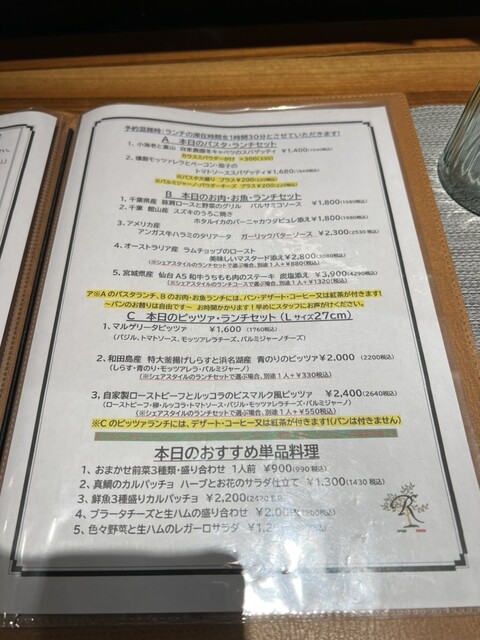 予約混雑時:ランチの滞在時間を1時間30分とさせていただきます!
A 本日のパスタ・ランチセット
1、小海老と葉山 自家農園キャベツのスパゲッティ ¥1,400(1540税込)
カラスミパウダー付け +300(330)
2、燻製モッツァレラとベーコン・茄子の
トマトソーススパゲッティ ¥1,680(1848税込)
※パスタ大盛り プラス¥200(220税込)
※パルミジャーノパウダーチーズ プラス¥200(220税込)
B 本日のお肉・お魚・ランチセット
1、千葉県産 豚肩ロースと野菜のグリル バルサミコソース ¥1,800(1980税込)
2、千葉 館山産 スズキのうろこ焼き
ホタルイカのバーニャカウダピュレ添え ¥1,800(1980税込)
3、アメリカ産
アンガス牛ハラミのタリアータ ガーリックバターソース ¥2,300(2530税込)
4、オーストラリア産 ラムチョップのロースト
美味しいマスタード添え ¥2,800(3080税込)
(※シェアスタイルのランチセットで選ぶ場合、別途1人+¥880(税込)
5、宮城県産 仙台A5和牛うちもも肉のステーキ 炭塩添え ¥3,900(4290税込)
(※シェアスタイルのランチコースで選ぶ場合、別途1人+¥1320(税込)
ア※Aのパスタランチ、Bのお肉・お魚ランチには、パン・デザート・コーヒー又は紅茶が付きます!
~パンのお替りは自由です~ お時間かかります!早めにスタッフにお声がけください。
C 本日のピッツァ・ランチセット(Lサイズ27cm)
1、マルゲリータピッツァ ¥1,600 (1760税込)
(バジル、トマトソース、モッツァレラチーズ、パルミジャーノチーズ)
2、和田島産 特大釜揚げしらすと浜名湖産 青のりのピッツァ ¥2,000 (2200税込)
(しらす・青のり・モッツァレラ・パルミジャーノ)
(※シェアスタイルのランチセットで選ぶ場合、別途1人+¥330税込)
3、自家製ローストビーフとルッコラのビスマルク風ピッツァ ¥2,400(2640税込)
(ローストビーフ・卵・ルッコラ・トマトソース・バジル・モッツァレラチーズ・パルミジャーノ)
(※シェアスタイルのランチセットで選ぶ場合、別途1人+¥550税込)
※Cのピッツァランチには、デザート・コーヒー又は紅茶が付きます!(パンは付きません)
本日のおすすめ単品料理
1、おまかせ前菜3種類・盛り合わせ 1人前 ¥900(990税込)
2、真鯛のカルパッチョ ハーブとお花のサラダ仕立て ¥1,300(1430税込)
3、鮮魚3種盛りカルパッチョ ¥2,200(2420税込)
4、ブラータチーズと生ハムの盛り合わせ
5、色々野菜と生ハムのレガーロサラダ